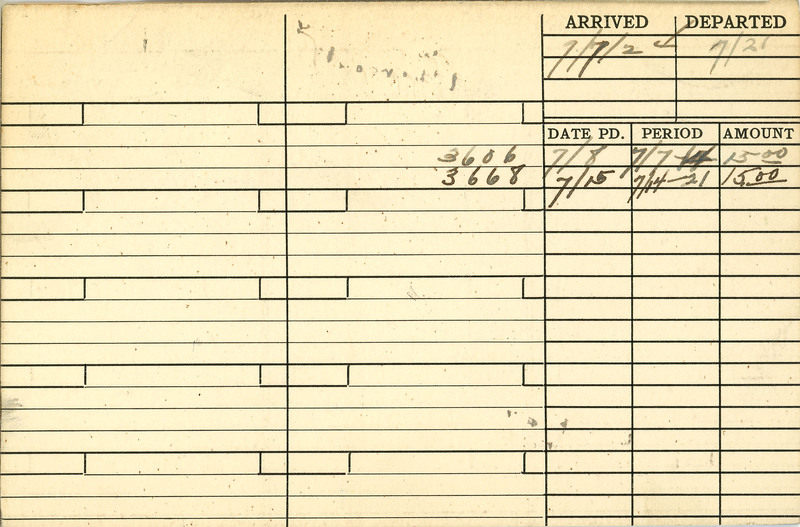 ARRIVED DEPARTED
7/7/2 7/21
DATE PD. PERIOD AMOUNT
3606 7/8 7/7-14 15.00
3668 7/15 7/14-21 15.00